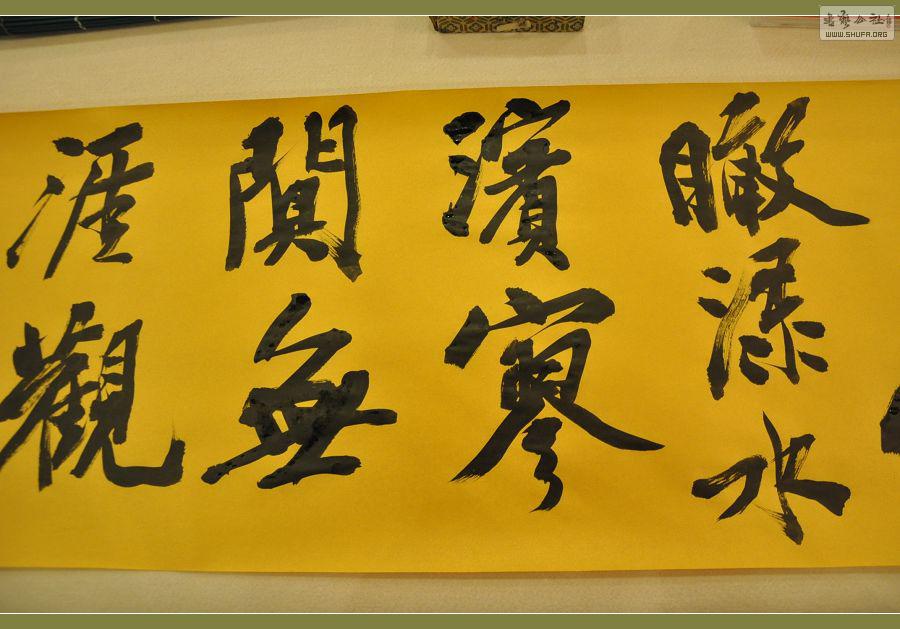 瞰渌水
濱寥
闃無
涯觀
書藝公社
WWW.SHUFA.ORG